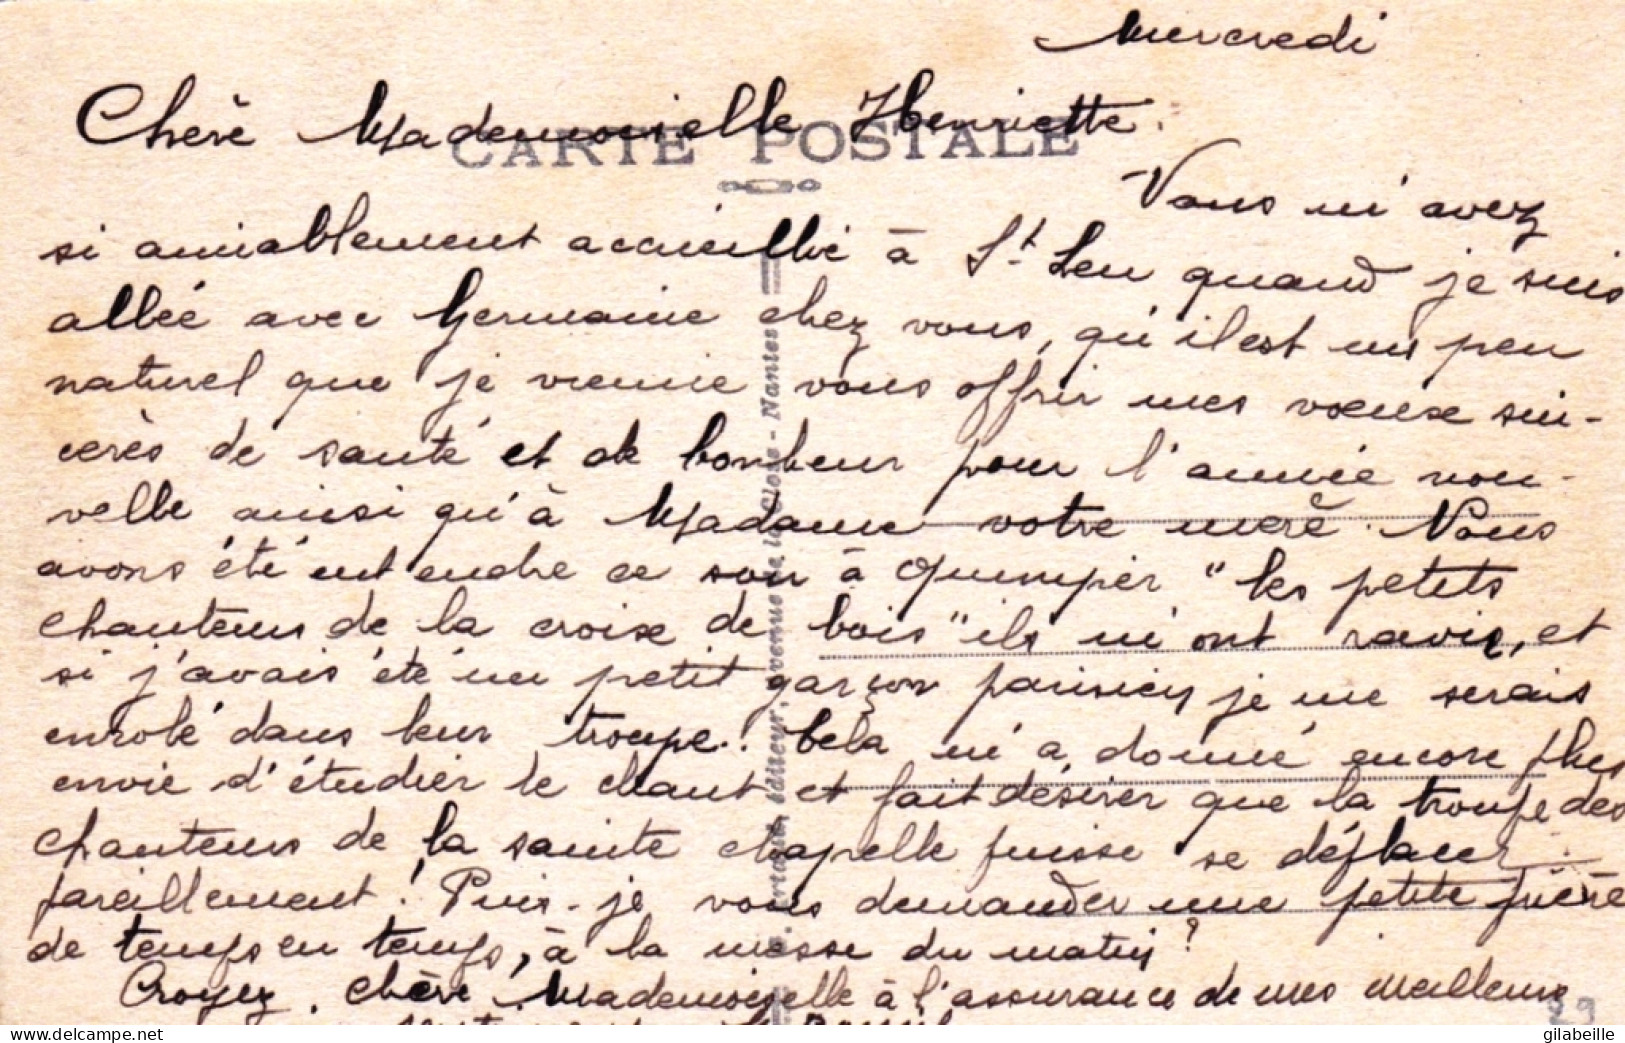 Mercredi
Chère Mademoiselle Henriette.
CARTE POSTALE
Vous m'avez
si aimablement accueillie à St Leu quand je suis
allée avec Germaine chez vous, qu'il est un peu
naturel que je vienne vous offrir mes voeux sin-
cères de santé et de bonheur pour l'année nou-
velle ainsi qu'à Madame votre mère. Nous
avons été entendre ce soir à Quimper "les petits
chanteurs de la croix de bois" ils m'ont ravie, et
si j'avais été un petit garçon parisien je me serais
enrolé dans leur troupe.. Cela m'a donné encore plus
envie d'étudier le chant et fait désirer que la troupe des
chanteurs de la sainte chapelle puisse se déplacer
pareillement! Puis-je vous demander une petite prière
de temps en temps, à la messe du matin?
Croyez, chère Mademoiselle à l'assurance de mes meilleurs
éditeur, venue la Close - Nantes
29
delcampe.net
gilabeille